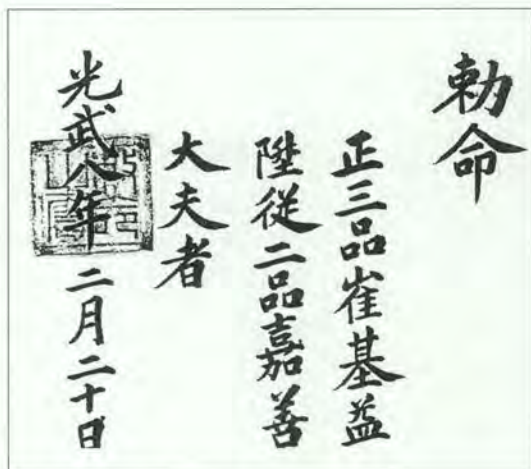 勅命
正三品崔基益
陞從二品嘉善
大夫者
光武八年 二月二十日